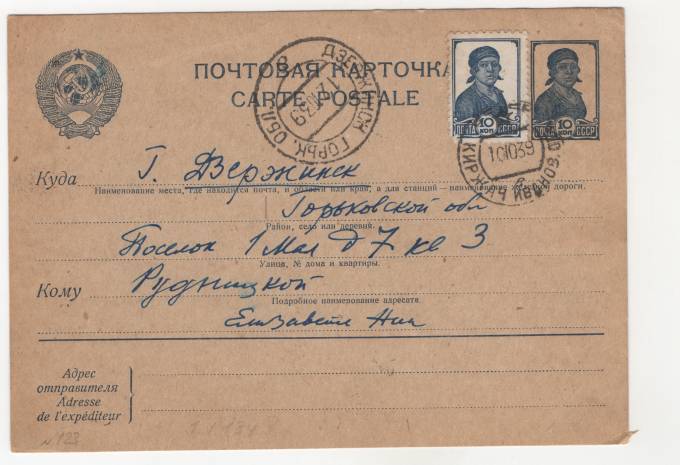 ПОЧТОВАЯ КАРТОЧКА
CARTE POSTALE
ДЗЕРЖИНСК ГОРЬК. ОБЛ.
10 ПОЧТА КОП. СССР
ПОЧТА 10 КОП. СССР
101039
Куда г. Дзержинск
Наименование места, где находится почта, и области или края, а для станций — наименование железной дороги.
Горьковской обл
Район, село или деревня.
Поселок 1 Мая д 7 кв 3
Улица, № дома и квартиры.
Кому Рудницкой
Подробное наименование адресата.
Елизавете
Адрес
отправителя
Adresse
de l'expéditeur